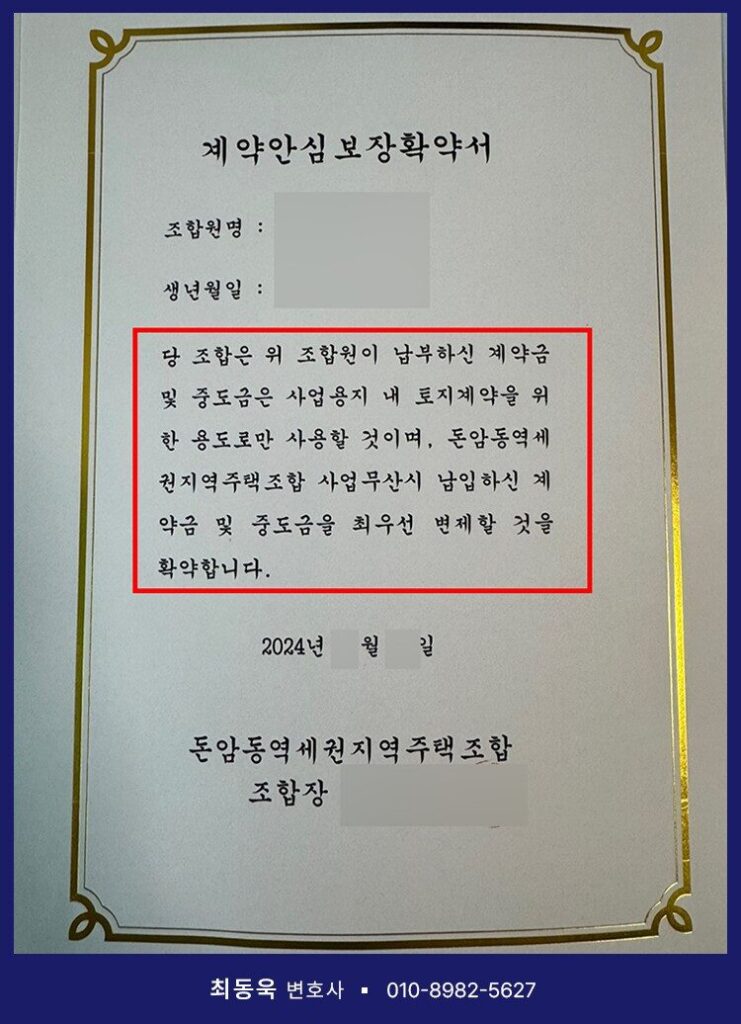 계약안심보장확약서
조합원명 :
생년월일 :
당 조합은 위 조합원이 납부하신 계약금
및 중도금은 사업용지 내 토지계약을 위
한 용도로만 사용할 것이며, 돈암동역세
권지역주택조합 사업무산시 납입하신 계
약금 및 중도금을 최우선 변제할 것을
확약합니다.
2024년 월 일
돈암동역세권지역주택조합
조합장
최동욱 변호사 ▪ 010-8982-5627